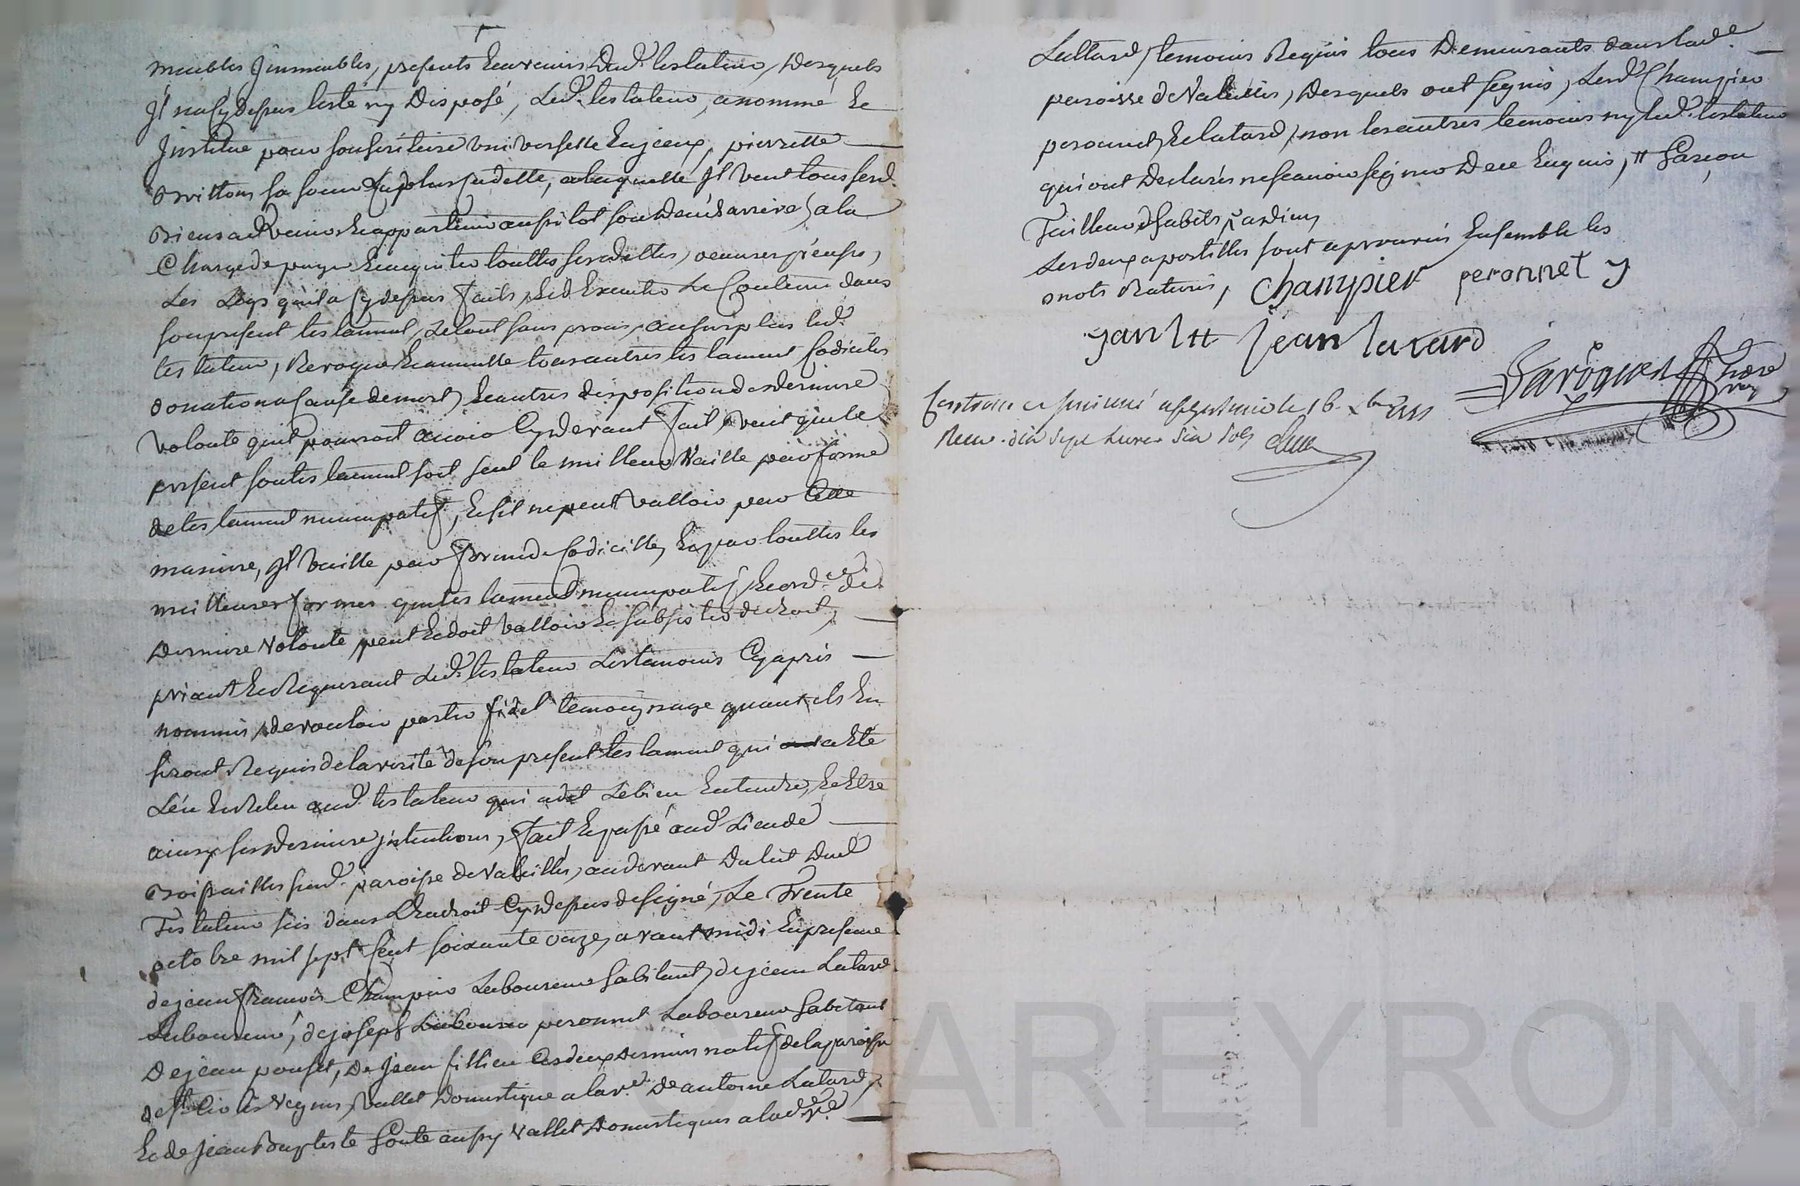 meubles Jmmeubles, presents & avenirs Dud.t testateur, Desquels
Jl na Cydessus testé ny Disposé, Led.t testateur, a nommé &
Jnstitué pour son heritiere universelle Enjceux, pierrette
sa soeur sa plus fidelle, a laquelle Jl veut tous sesd.
Biens advenir & appartenir aussitot son Deces arrivé, a la
Charge de payer & acquiter touttes ses dettes, oeuvres pieuses,
Les Legs quil a Cydessus faits, & d'Executer Le Contenu dans
son present testament, Le tout sans frais, au surplus led.t
testateur, Revoque & annulle tous autres testament Codiciles
donation a Cause de mort, & autres disposition de derniere
volonté quil pourroit avoir Cydevant fait & veut que le
present son testament soit seul le meilleur & vaille par forme
de testament nuncupatif, & sil ne peut valloir par cette
maniere, Jl vaille par forme de Codicille, & par touttes les
meilleures formes que testament nuncupatif & ord.ce de
derniere volonté peut & doit valloir & subsister de droit,
priant & Requerant Led.t testateur Les temoins Cy apres
nommés, de vouloir porter fidel temoignage quant ils En
seront Requis de la verité de son present testament qui a Eté
Leu & Releu aud.t testateur qui a dit Le bien Entendre, & Etre
ainsy ses derniere jntentions, fait & passé aud.t Lieu de
sud.t paroisse de Valeilles, au devant Du lit Dud.t
Testateur sis dans L'Endroit Cydessus designé, Le Trente
octobre mil sept Cent soixante onze, avant midi En presence
de jean francois Champier Laboureur habitant, de jean Latard
Laboureur, de joseph peronnet Laboureur habitant
De jean ponset, De Jean fillieu Ces deux derniers natif de la paroisse
de vallet Domestique a la v.e De antoine Latard,
& de Jean Baptiste aussy vallet Domestiques a lad.e v.e
Lattard, temoins Requis tous Demeurants dans lad.e
paroisse de Valeilles, Desquels ont signés, Lesd.t Champier
peronnet, & latard, non les autres temoins ny led.t testateur
qui ont Declarés ne scavoir signer De ce Enquis, # Garçon
Tailleur d'habits,
Les deux apostilles sont approuvées Ensemble les
mots Raturés, Champier peronnet y
jean latard
Controllé 16. x.bre 1771
Receu dix sept livres dix sols